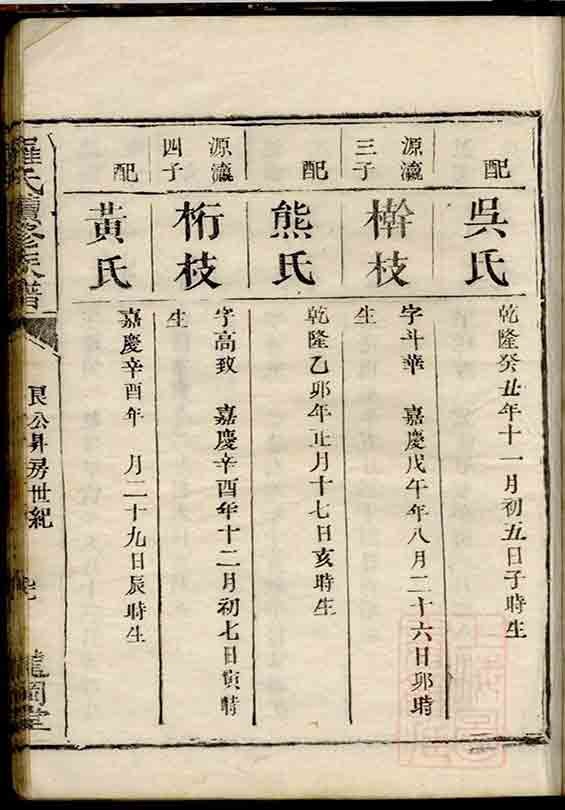 配
吳氏
乾隆癸丑年十一月初五日子時生
源瀛
三子
榦枝
字斗華 嘉慶戊午年八月二十六日卯時
生
配
熊氏
乾隆乙卯年正月十七日亥時生
源瀛
四子
桁枝
字高致 嘉慶辛酉年十二月初七日寅時
生
配
黃氏
嘉慶辛酉年 月二十九日辰時生
羅氏續修族譜
艮公昇房世紀
龍岡堂